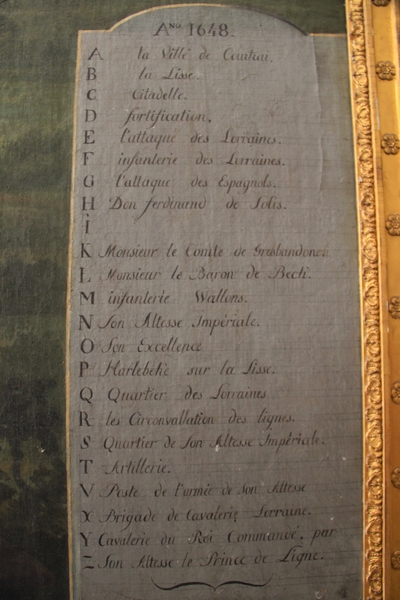 Ano 1648.
A la Ville de Coutrai.
B la Lisse.
C Citadelle.
D fortification.
E l'attaque des Lorraines.
F infanterie des Lorraines.
G l'attaque des Espagnols.
H Don ferdinand de Solis.
i
K Monsieur le Comte de Grosbandonck
L Monsieur le Baron de Beck.
M infanterie Wallons.
N Son Altesse Impériale.
O Son Excellence
P Harlebeke sur la Lisse.
Q Quartier des Lorraines
R les Circonvallation des lignes.
S Quartier de Son Altesse Impériale.
T Artillerie.
V Poste de l'armée de Son Altesse
X Brigade de Cavalerie Lorraine.
Y Cavalerie du Roi Commandé, par
Z Son Altesse le Prince de Ligne.